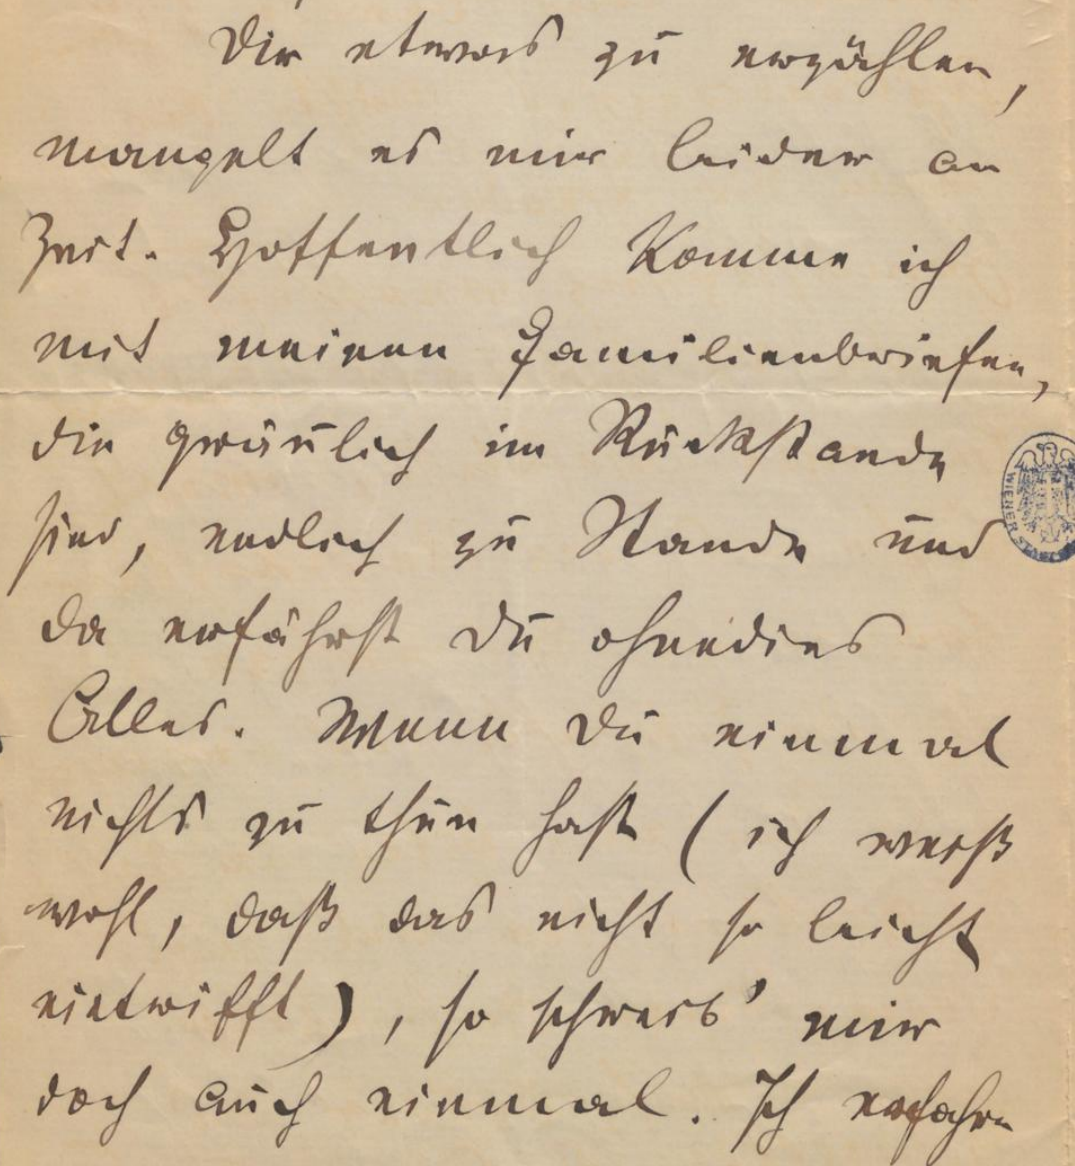 Dir etwas zu erzählen,
mangelt es mir leider an
Zeit. Hoffentlich komme ich
mit meinen Familienbriefen,
die gräulich im Rückstande
sind, endlich zu Stande und
da erfährst Du ohnedies
Alles. Wenn Du einmal
nichts zu thun hast (ich weiß
wohl, daß das nicht so leicht
eintrifft), so schreib' mir
doch auch einmal. Ich erfahre
WIENER STADT